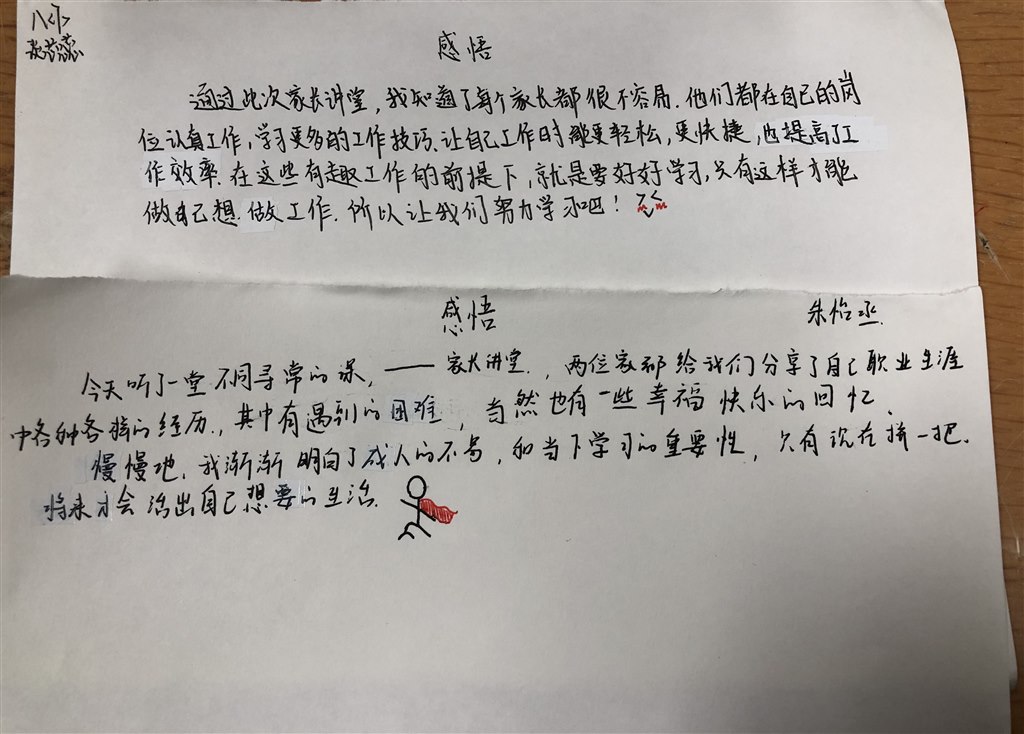 八〈1〉
感悟
通过此次家长讲堂，我知道了每个家长都很不容易．他们都在自己的岗
位认真工作，学习更多的工作技巧．让自己工作时能更轻松，更快捷，也提高了工
作效率．在这些有趣工作的前提下，就是要好好学习，只有这样才能
做自己想做工作．所以让我们努力学习吧！
感悟
朱怡丞．
今天听了一堂不同寻常的课，——家长讲堂．，两位家都给我们分享了自己职业生涯
中各种各样的经历．，其中有遇到的困难，当然也有一些幸福快乐的回忆．
慢慢地．我渐渐明白了成人的不易，和当下学习的重要性，只有现在拼一把．
将来才会活出自己想要的生活．